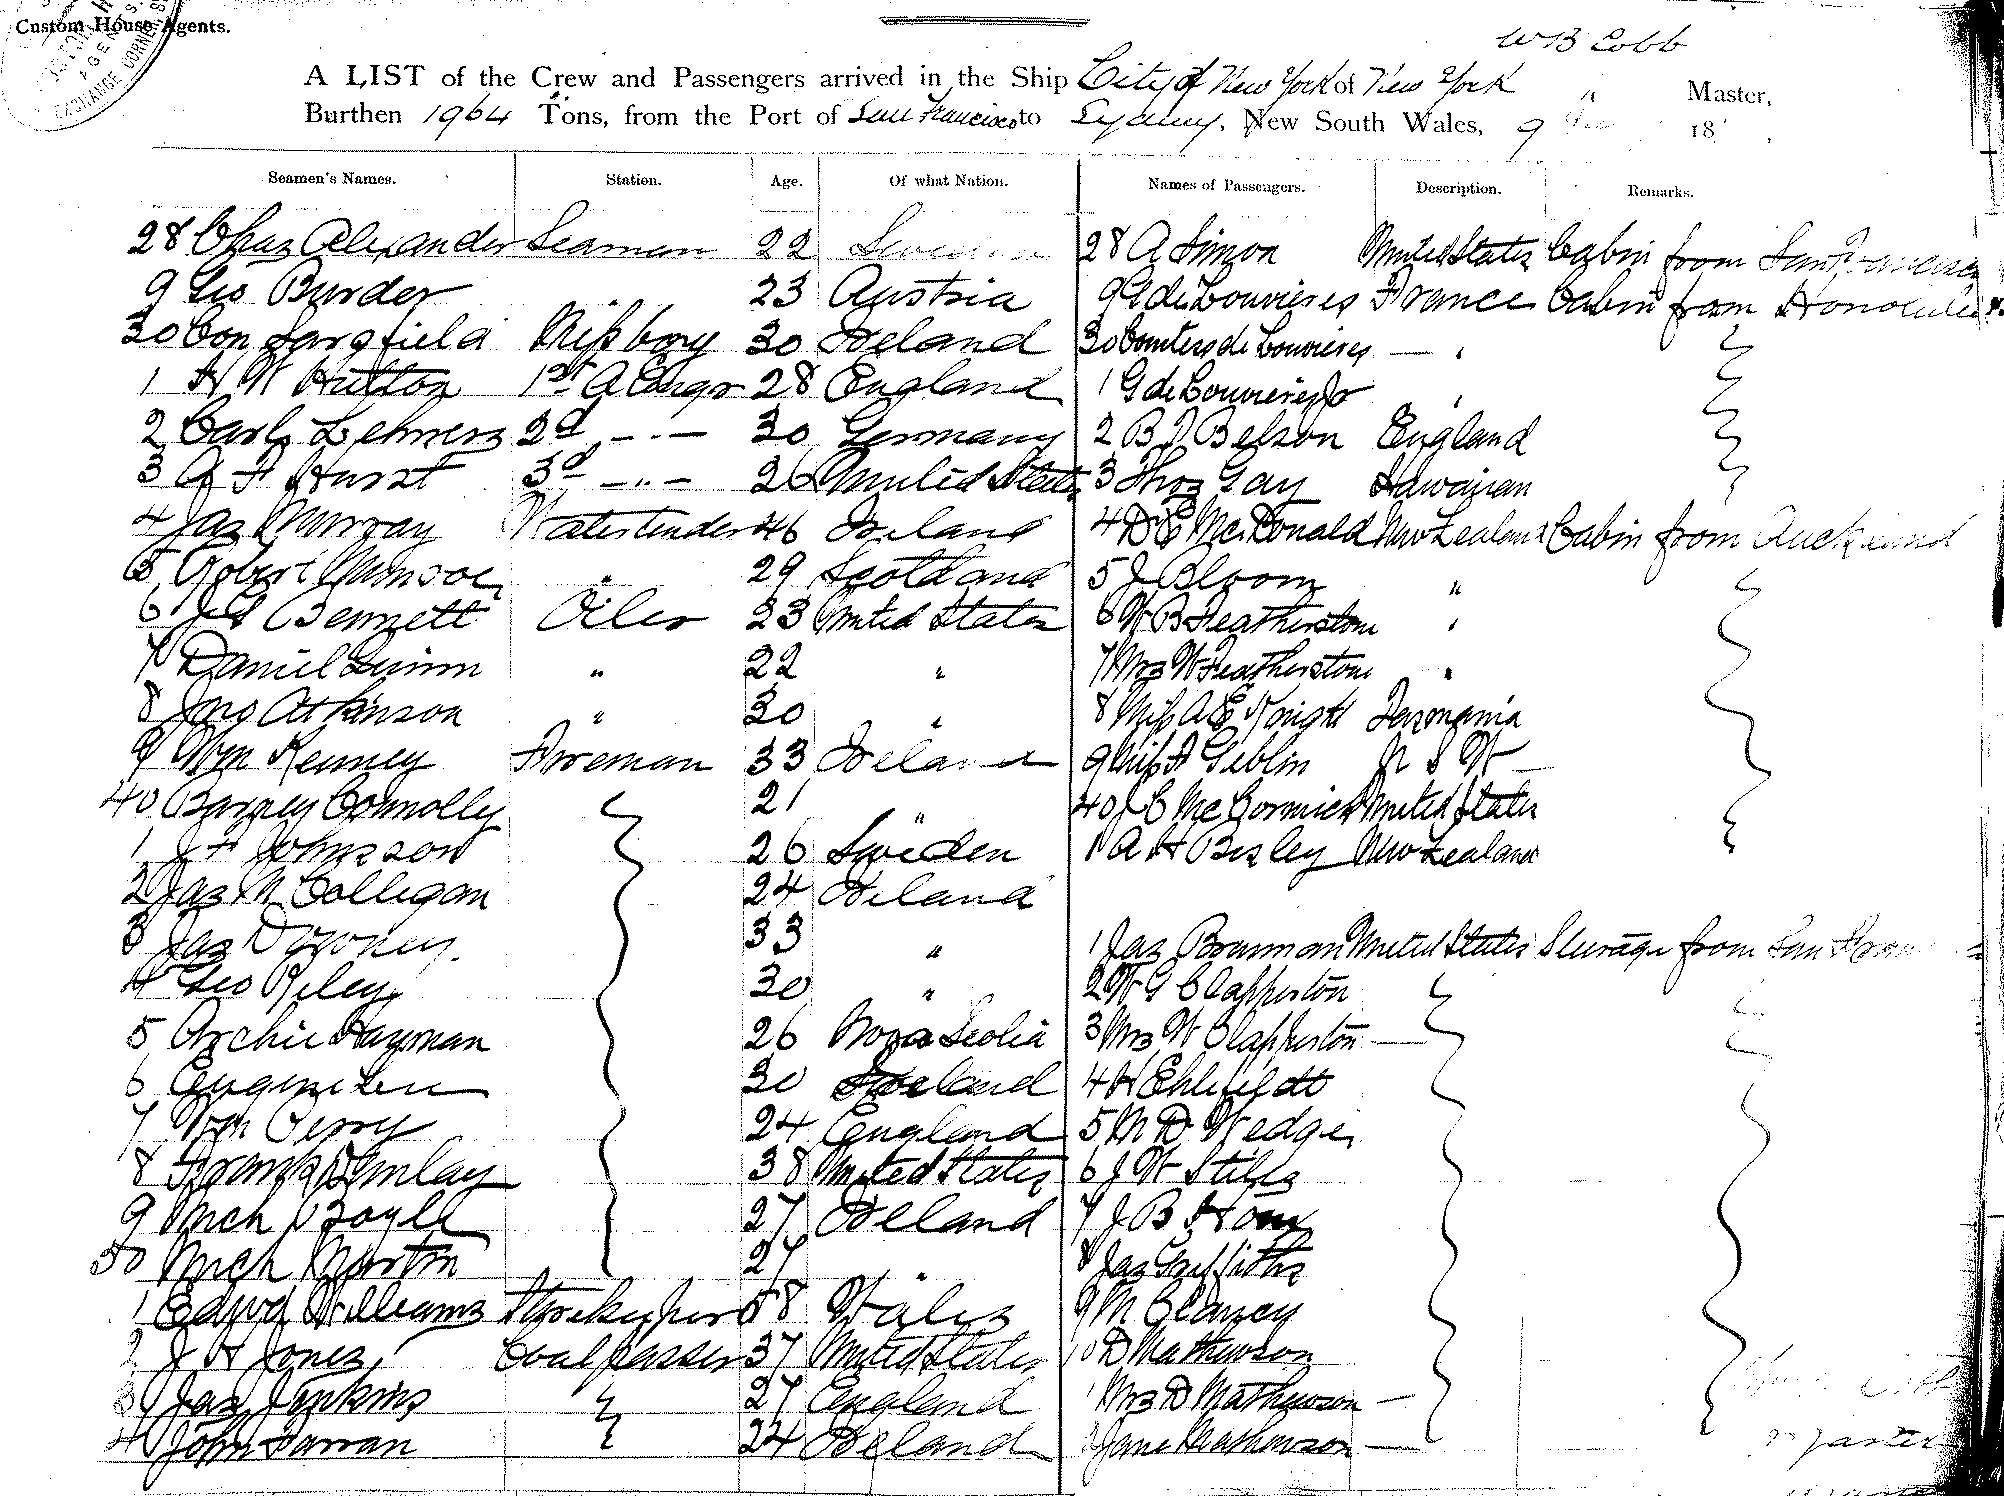 Custom House Agents.
EXCHANGE CORNER
W B Cobb
A LIST of the Crew and Passengers arrived in the Ship City of New York of New York " Master,
Burthen 1964 Tons, from the Port of San Francisco to Sydney, New South Wales, 9 18
Seamen's Names. Station. Age. Of what Nation. Names of Passengers. Description. Remarks.
28 Chas Alexander Seaman 22 Sweden 28 A Simon United States Cabin from San Francisco
9 Geo Burder 23 Austria 9 G de Louvieres France Cabin from Honolulu
30 Con Langfield Messboy 30 Ireland 30 Comtess de Louvieres — "
1 H W Hutton 1st A Engr 28 England 1 G de Louvieres Jr "
2 Carl Lehners 2d — " — 30 Germany 2 B J Belson England
3 A F Hurst 3d — " — 26 United States 3 Thos Gay Hawaiian
4 Jas Murray Watertender 46 Ireland 4 D E McDonald New Zealand Cabin from Auckland
5 Robert Munroe " 29 Scotland 5 J Bloom "
6 J S Bennett Oiler 23 United States 6 W B Featherstone "
7 Daniel Quinn " 22 " 7 Mrs W Featherstone "
8 Jno Atkinson " 30 " 8 Miss A E Knight Tasmania
9 Wm Kenney Fireman 33 Ireland 9 Miss F Giblin N S W
40 Barney Connolly 21 " 40 J C McCormick United States
1 J F Johnsson 26 Sweden 1 A H Bisley New Zealand
2 Jas McColligan 24 Ireland
3 Jas Doroney. 33 " 1 Jas Brannan United States Steerage from San Fran
4 Geo Riley 30 " 2 W G Clapperton
5 Archie Hayman 26 Nova Scotia 3 Mrs W Clapperton —
6 30 Ireland 4 H Ehlfeldt
7 Wm Perry 24 England 5 M D Wedge
8 Frank Finlay 38 United States 6 J W Stiles
9 Mch Boyle 27 Ireland 7 J B Horn
50 Mich Martin 27 " 8 Jas Griffiths
1 Edwd Williams Storekeeper 58 Wales 9 M Clancy
2 J H Jones Coalpasser 37 United States 10 D Mathewson
3 Jas Jenkins 27 England 1 Mrs D Mathewson —
4 John Farran 24 Ireland 2 Jane Mathewson —
Master